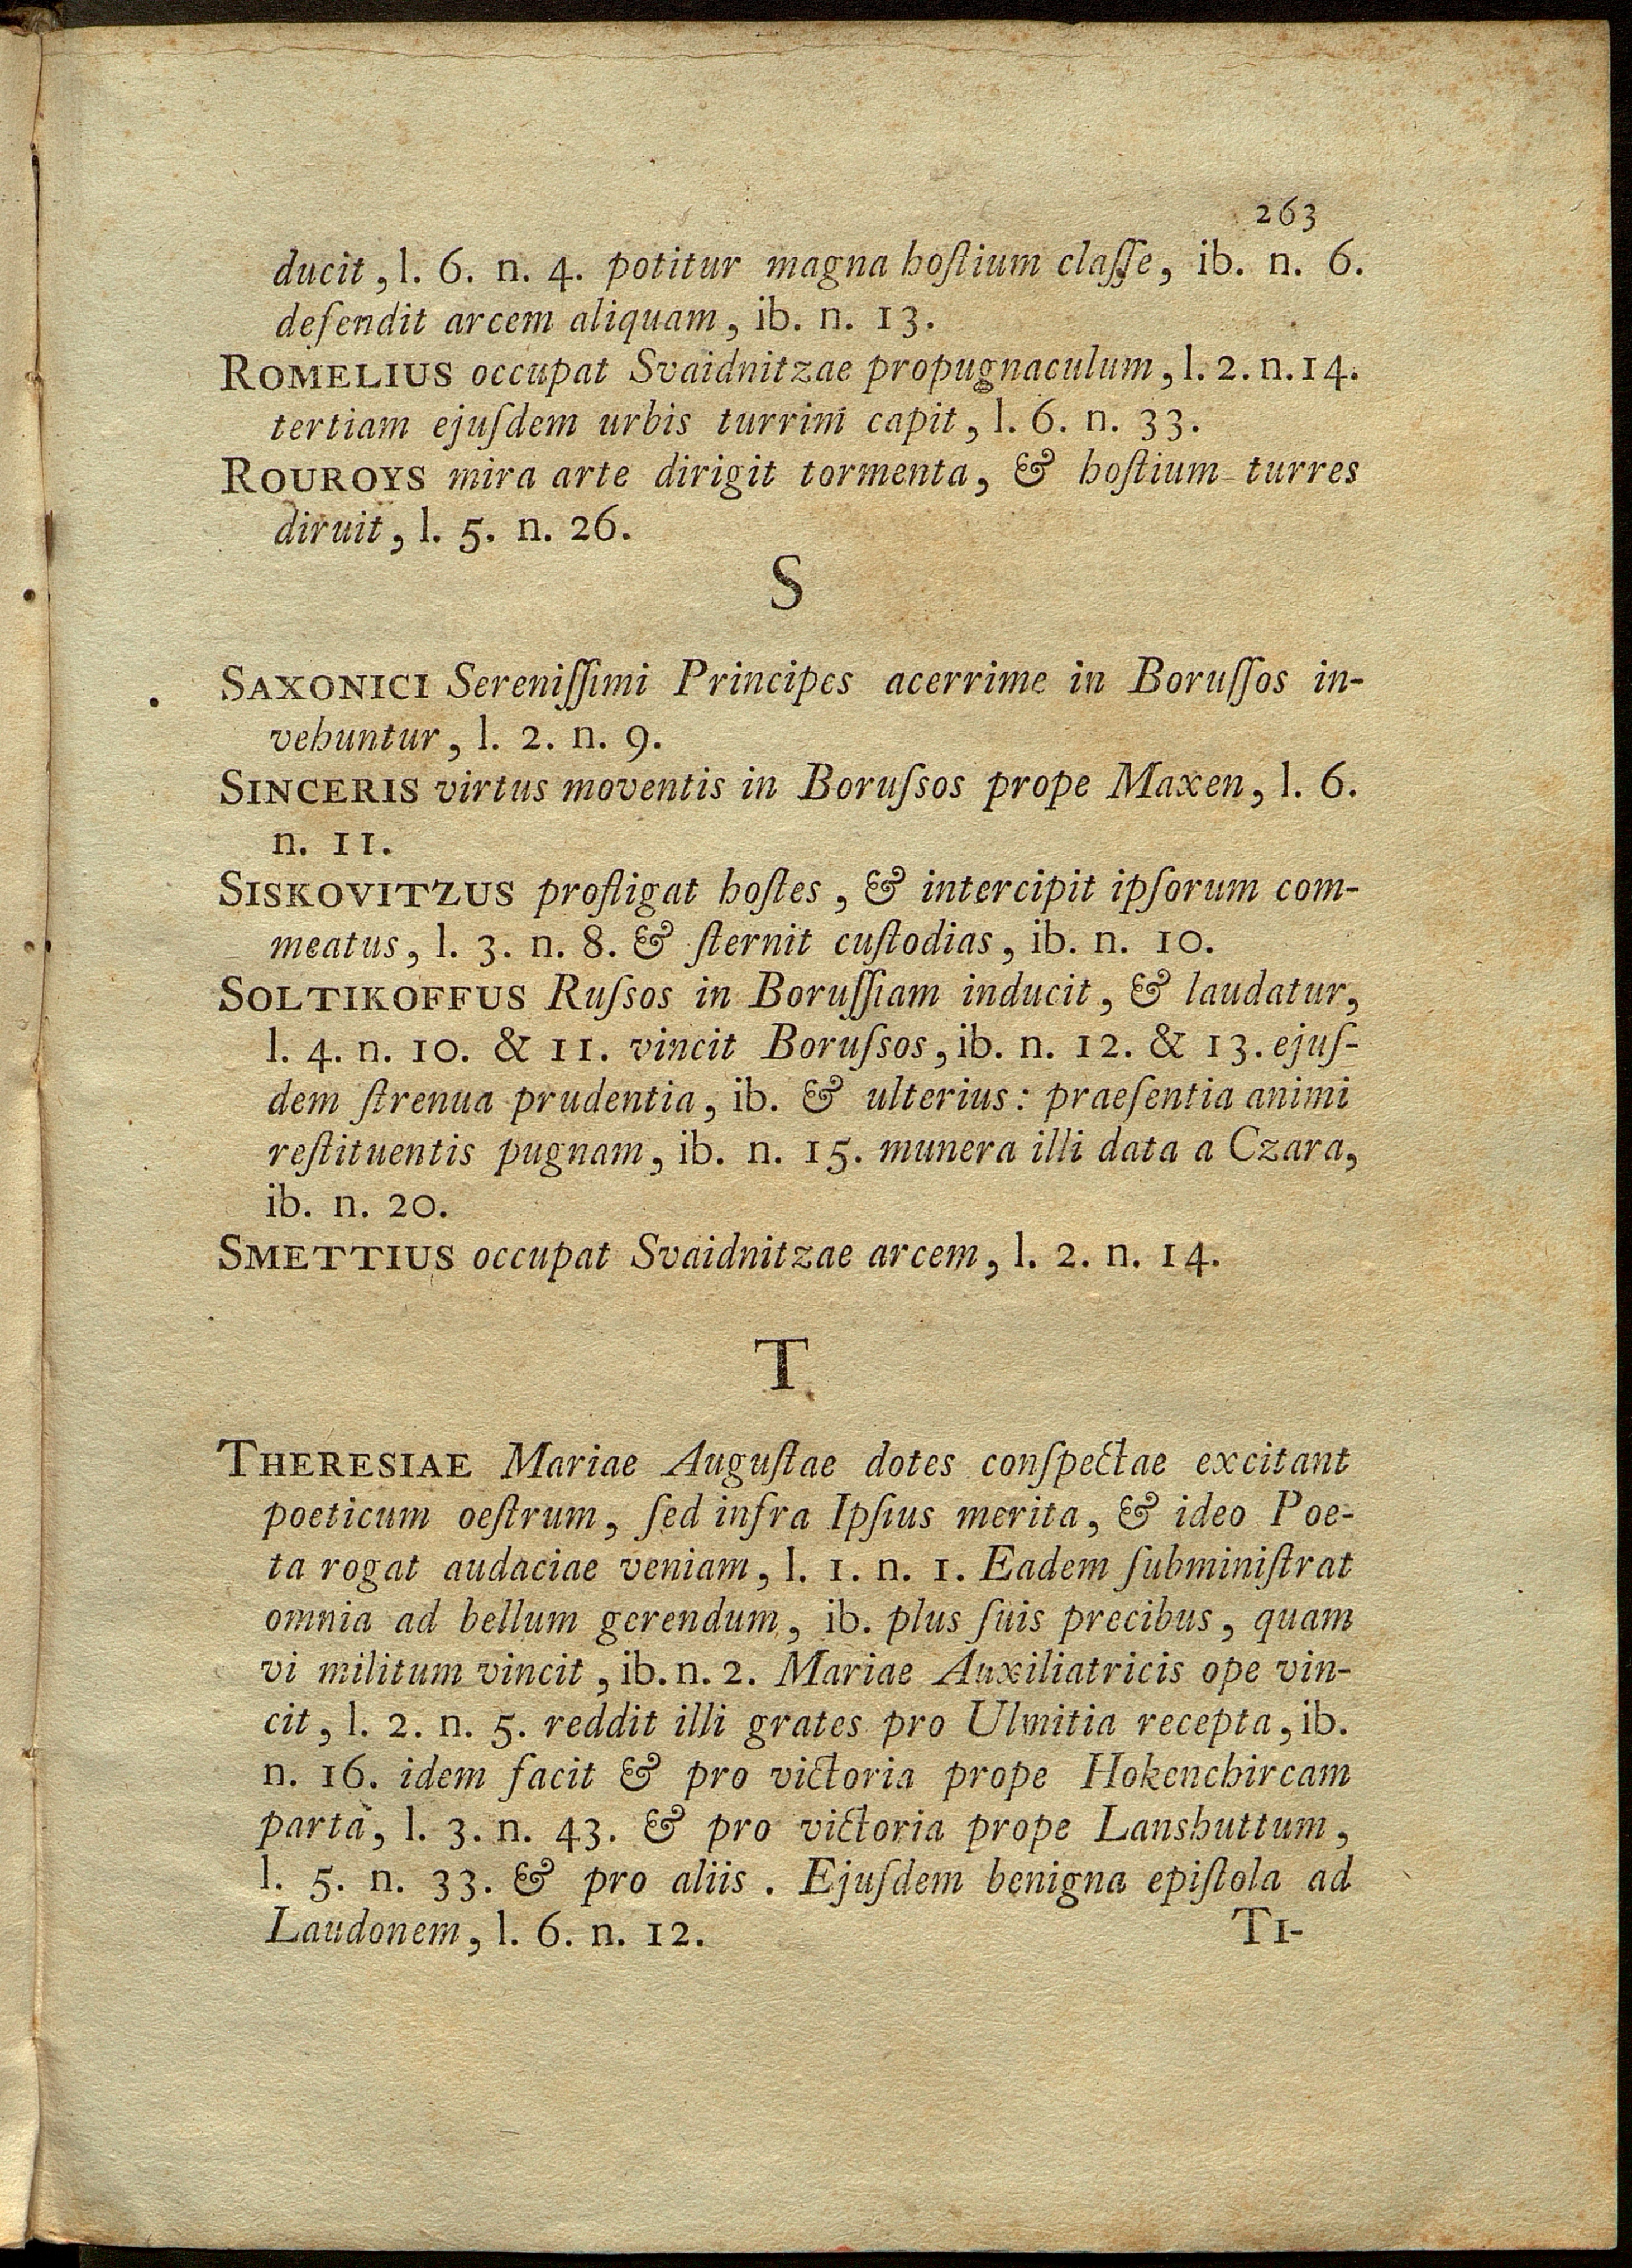 263
ducit, l. 6. n. 4. potitur magna hoſtium claſſe, ib. n. 6.
defendit arcem aliquam, ib. n. 13.
ROMELIUS occupat Svaidnitzae propugnaculum, l. 2. n. 14.
tertiam ejuſdem urbis turrim capit, l. 6. n. 33.
ROUROYS mira arte dirigit tormenta, & hoſtium turres
diruit, l. 5. n. 26.
S
SAXONICI Sereniſſimi Principes acerrime in Boruſſos in-
vehuntur, l. 2. n. 9.
SINCERIS virtus moventis in Boruſsos prope Maxen, l. 6.
n. 11.
SISKOVITZUS profligat hoſtes, & intercipit ipſorum com-
meatus, l. 3. n. 8. & ſternit cuſtodias, ib. n. 10.
SOLTIKOFFUS Ruſsos in Boruſſiam inducit, & laudatur,
l. 4. n. 10. & 11. vincit Boruſsos, ib. n. 12. & 13. ejuſ-
dem ſtrenua prudentia, ib. & ulterius: praeſentia animi
reſtituentis pugnam, ib. n. 15. munera illi data a Czara,
ib. n. 20.
SMETTIUS occupat Svaidnitzae arcem, l. 2. n. 14.
T
THERESIAE Mariae Auguſtae dotes conſpectae excitant
poeticum oeſtrum, ſed infra Ipſius merita, & ideo Poe-
ta rogat audaciae veniam, l. 1. n. 1. Eadem ſubminiſtrat
omnia ad bellum gerendum, ib. plus ſuis precibus, quam
vi militum vincit, ib. n. 2. Mariae Auxiliatricis ope vin-
cit, l. 2. n. 5. reddit illi grates pro Ulmitia recepta, ib.
n. 16. idem facit & pro victoria prope Hokenchircam
parta, l. 3. n. 43. & pro victoria prope Lanshuttum,
l. 5. n. 33. & pro aliis. Ejuſdem benigna epiſtola ad
Laudonem, l. 6. n. 12.
TI-